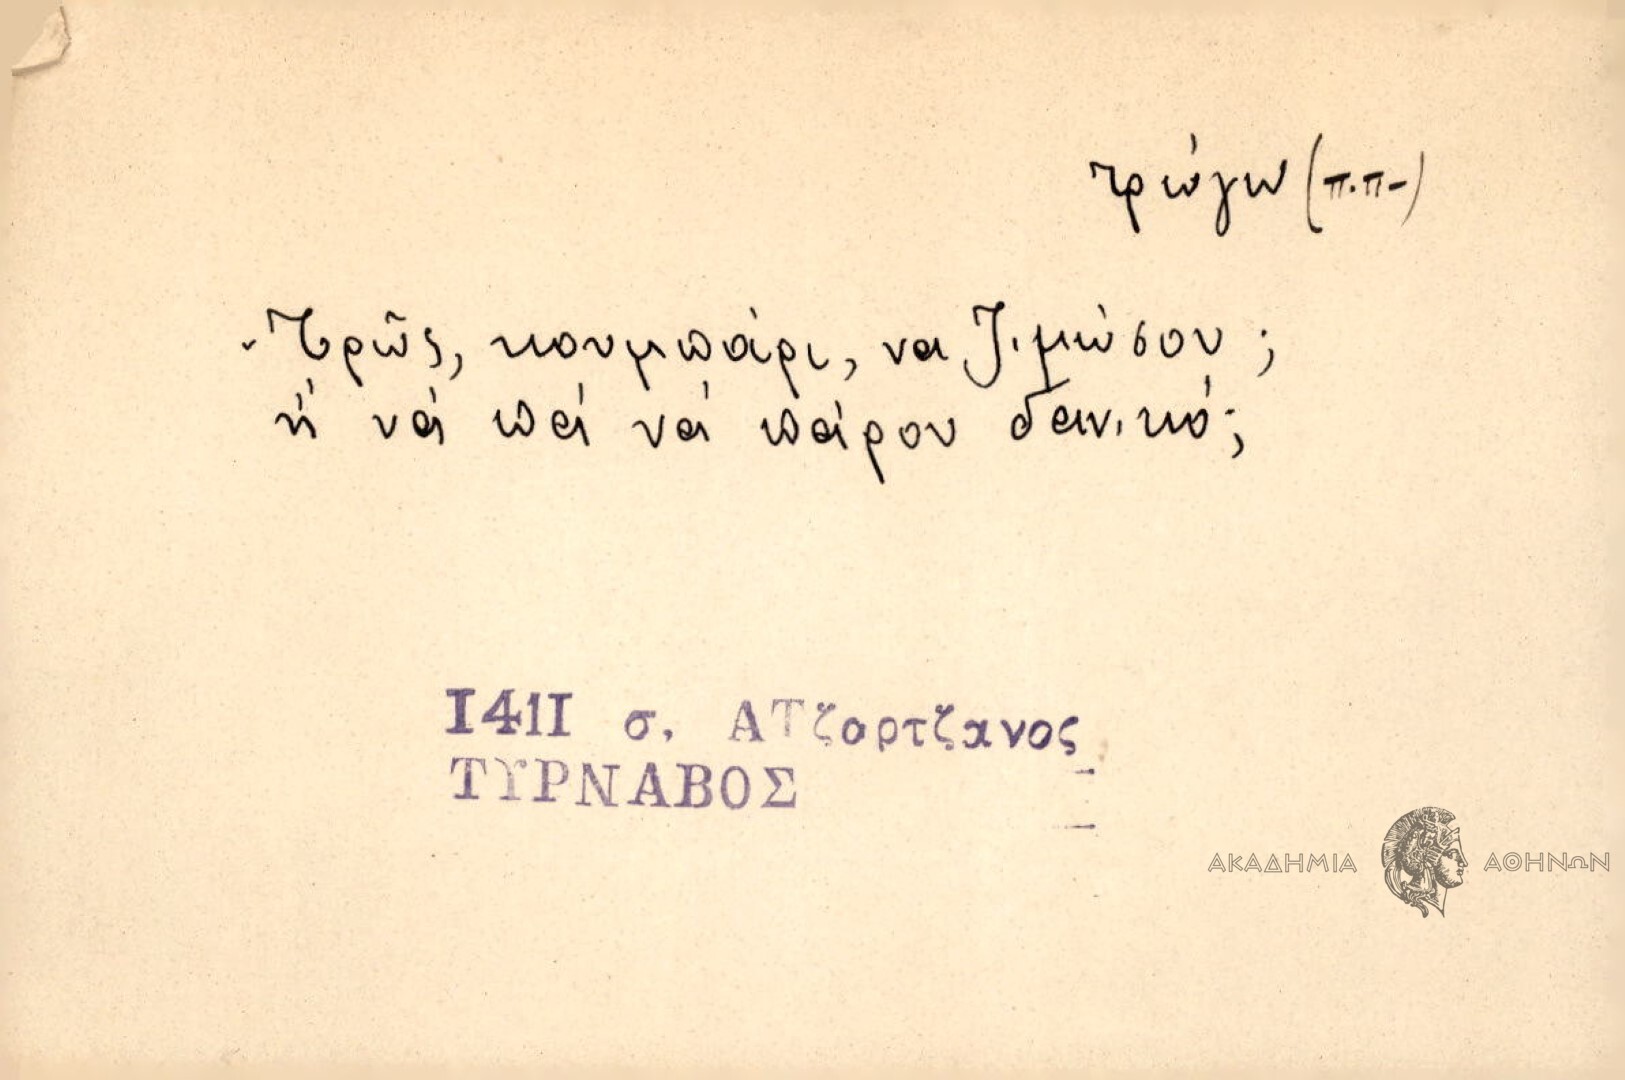 τρώγω (π.π-)
- Τρῶς, κουμπάρι, να ζ'μώσου;
ή νά πάς νά πάρου δαν'κό;
1411 σ. ΑΤζαρτζανος
ΤΥΡΝΑΒΟΣ
ΑΚΑΔΗΜΙΑ ΑΘΗΝΩΝ